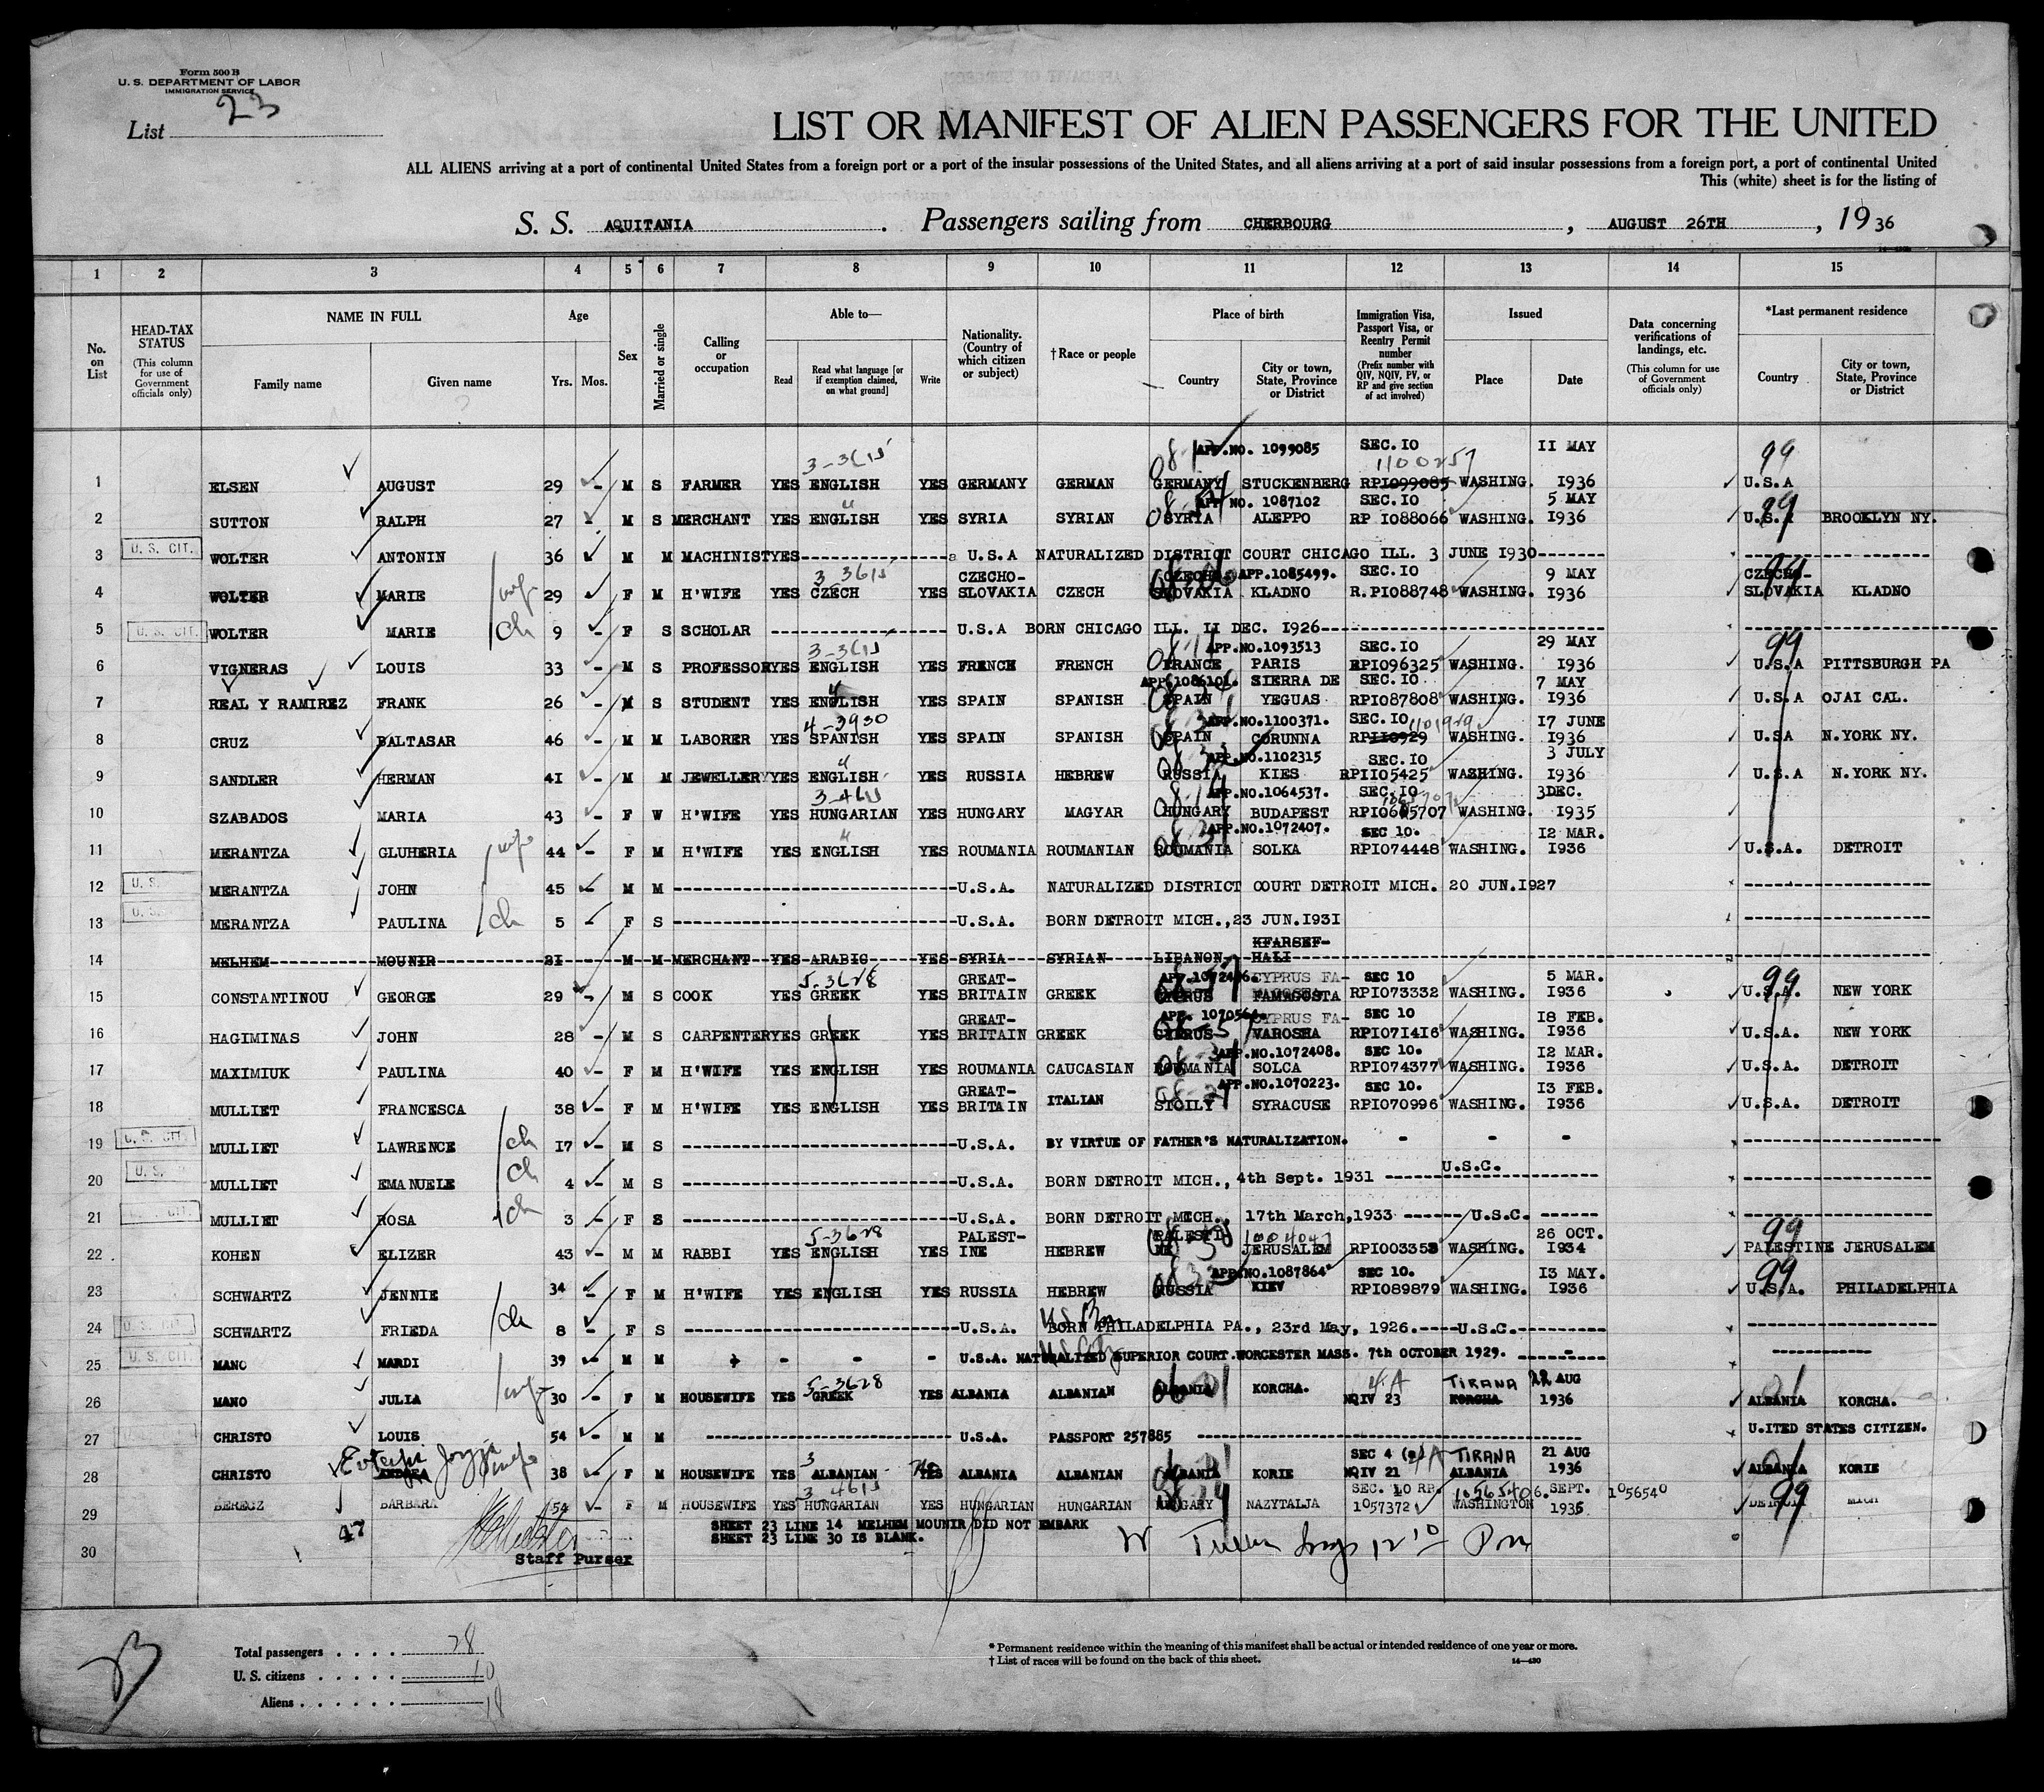 Form 500 B
U. S. DEPARTMENT OF LABOR
IMMIGRATION SERVICE
List 23
LIST OR MANIFEST OF ALIEN PASSENGERS FOR THE UNITED
ALL ALIENS arriving at a port of continental United States from a foreign port or a port of the insular possessions of the United States, and all aliens arriving at a port of said insular possessions from a foreign port, a port of continental United
This (white) sheet is for the listing of
S. S. AQUITANIA . Passengers sailing from CHERBOURG , AUGUST 26TH , 19 36
1 2 3 4 5 6 7 8 9 10 11 12 13 14 15
No. on List
HEAD-TAX STATUS (This column for use of Government officials only)
NAME IN FULL Family name Given name
Age Yrs. Mos.
Sex
Married or single
Calling or occupation
Able to— Read Read what language [or if exemption claimed, on what ground] Write
Nationality. (Country of which citizen or subject)
†Race or people
Place of birth Country City or town, State, Province or District
Immigration Visa, Passport Visa, or Reentry Permit number (Prefix number with QIV, NQIV, PV, or RP and give section of act involved)
Issued Place Date
Data concerning verifications of landings, etc. (This column for use of Government officials only)
*Last permanent residence Country City or town, State, Province or District
APP.NO. 1099085 SEC.IO II MAY 99
3-3615 1100257
1 ELSEN AUGUST 29 - M S FARMER YES ENGLISH YES GERMANY GERMAN GERMANY STUCKENBERG RPI099085 WASHING. I936 U.S.A
APP NO. 1087102 SEC.IO 5 MAY 99
2 SUTTON RALPH 27 - M S MERCHANT YES ENGLISH YES SYRIA SYRIAN SYRIA ALEPPO RP I088066 WASHING. I936 U.S.A BROOKLYN NY.
3 U. S. CIT. WOLTER ANTONIN 36 M M MACHINIST YES U.S.A NATURALIZED DISTRICT COURT CHICAGO ILL. 3 JUNE I930
3 3615 CZECHO- CZECHO- APP.1085499. SEC.IO 9 MAY CZECHO- 99
4 WOLTER MARIE wife 29 F M H'WIFE YES CZECH YES SLOVAKIA CZECH SLOVAKIA KLADNO R.PI088748 WASHING. I936 SLOVAKIA KLADNO
5 U. S. CIT. WOLTER MARIE ch 9 - F S SCHOLAR U.S.A BORN CHICAGO ILL. II DEC. I926
3-3615 APP.NO.1093513 SEC.IO 29 MAY 99
6 VIGNERAS LOUIS 33 - M S PROFESSOR YES ENGLISH YES FRENCH FRENCH FRANCE PARIS RPI096325 WASHING. I936 U.S.A PITTSBURGH PA
APP.1086101. SIERRA DE SEC.IO 7 MAY
7 REAL Y RAMIREZ FRANK 26 - M S STUDENT YES ENGLISH YES SPAIN SPANISH SPAIN YEGUAS RPI087808 WASHING. I936 U.S.A OJAI CAL.
4-3930 APP.NO.1100371. SEC.IO 1101929 17 JUNE
8 CRUZ BALTASAR 46 - M M LABORER YES SPANISH YES SPAIN SPANISH SPAIN CORUNNA RPII0929 WASHING. I936 U.SA N.YORK NY.
APP.NO.1102315 SEC.IO 3 JULY
9 SANDLER HERMAN 4I - M M JEWELLERY YES ENGLISH YES RUSSIA HEBREW RUSSIA KIES RPII05425 WASHING. I936 U.S.A N.YORK NY.
3-4615 APP.NO.1064537. SEC.IO 3DEC.
10 SZABADOS MARIA 43 - F W H'WIFE YES HUNGARIAN YES HUNGARY MAGYAR HUNGARY BUDAPEST WASHING. I935
APP.NO.1072407. SEC 10. I2 MAR.
11 MERANTZA GLUHERIA wife 44 - F M H'WIFE YES ENGLISH YES ROUMANIA ROUMANIAN ROUMANIA SOLKA RPI074448 WASHING. I936 U.S.A. DETROIT
12 U. S. MERANTZA JOHN 45 - M M U.S.A. NATURALIZED DISTRICT COURT DETROIT MICH. 20 JUN.I927
13 U. S. MERANTZA PAULINA ch 5 - F S U.S.A. BORN DETROIT MICH.,23 JUN.I93I
KFARSEF-
14 MELHEM MOUNIR 2I M M MERCHANT YES ARABIC YES SYRIA SYRIAN LIBANON HALI
5-3628 GREAT- APP.1072406. CYPRUS FA- SEC 10 5 MAR. 99
15 CONSTANTINOU GEORGE 29 - M S COOK YES GREEK YES BRITAIN GREEK CYPRUS FAMAGUSTA RPI073332 WASHING. I936 U.S.A. NEW YORK
GREAT- APP. 1070564. CYPRUS FA- SEC 10 I8 FEB.
16 HAGIMINAS JOHN 28 - M S CARPENTER YES GREEK YES BRITAIN GREEK CYPRUS VAROSHA RPI071416 WASHING. I936 U.S.A. NEW YORK
APP.NO.1072408. SEC 10. I2 MAR.
17 MAXIMIUK PAULINA 40 - F M H'WIFE YES ENGLISH YES ROUMANIA CAUCASIAN ROUMANIA SOLCA RPI074377 WASHING. I936 U.S.A. DETROIT
GREAT- APP.NO.1070223. SEC 10. I3 FEB.
18 MULLIET FRANCESCA 38 - F M H'WIFE YES ENGLISH YES BRITAIN ITALIAN SICILY SYRACUSE RPI070996 WASHING. I936 U.S.A. DETROIT
19 U. S. CIT. MULLIET LAWRENCE ch I7 - M S U.S.A. BY VIRTUE OF FATHER'S NATURALIZATION. - - -
20 U. S. MULLIET EMANUELE ch 4 - M S U.S.A. BORN DETROIT MICH., 4th Sept. 1931 U.S.C.
21 U. S. CIT. MULLIET ROSA ch 3 - F S U.S.A. BORN DETROIT MICH., 17th March,1933 U.S.C.
5-3628 PALEST- PALESTI 1004047 26 OCT. 99
22 KOHEN ELIZER 43 - M M RABBI YES ENGLISH YES INE HEBREW NE JERUSALEM RPI003353 WASHING. I934 PALESTINE JERUSALEM
APP.NO.1087864 SEC 10. I3 MAY. 99
23 SCHWARTZ JENNIE 34 - F M H'WIFE YES ENGLISH YES RUSSIA HEBREW RUSSIA KIEV RPI089879 WASHING. I936 U.S.A. PHILADELPHIA
24 U. S. CIT. SCHWARTZ FRIEDA ch 8 - F S U.S.A. BORN PHILADELPHIA PA., 23rd May, 1926. U.S.C.
25 U. S. CIT. MANO MARDI 39 - M M - - - U.S.A. NATURALIZED SUPERIOR COURT.WORCESTER MASS. 7th OCTOBER 1929.
5-3628 4A TIRANA 22 AUG
26 MANO JULIA wife 30 - F M HOUSEWIFE YES GREEK YES ALBANIA ALBANIAN ALBANIA KORCHA. NQIV 23 KORCHA 1936 ALBANIA KORCHA.
27 CHRISTO LOUIS 54 - M M U.S.A. PASSPORT 257885 U.ITED STATES CITIZEN.
3 SEC 4 (a) 4A TIRANA 21 AUG
28 CHRISTO ANDREA wife 38 - F M HOUSEWIFE YES ALBANIAN YES ALBANIA ALBANIAN ALBANIA KORIE NQIV 21 ALBANIA 1936 ALBANIA KORIE
3 4615 SEC. 10 RP. SEPT. 1056540
29 BERECZ BARBARA 54 - F M HOUSEWIFE YES HUNGARIAN YES HUNGARIAN HUNGARIAN HUNGARY NAZYTALJA 1057372 WASHINGTON 1935 DETROIT MICH 99
47 SHEET 23 LINE 14 MELHEM MOUNIR DID NOT EMBARK
SHEET 23 LINE 30 IS BLANK.
30 Staff Purser
Total passengers . . . . 28
U. S. citizens . . . . . 10
Aliens . . . . . . 18
* Permanent residence within the meaning of this manifest shall be actual or intended residence of one year or more.
† List of races will be found on the back of this sheet. 14—430